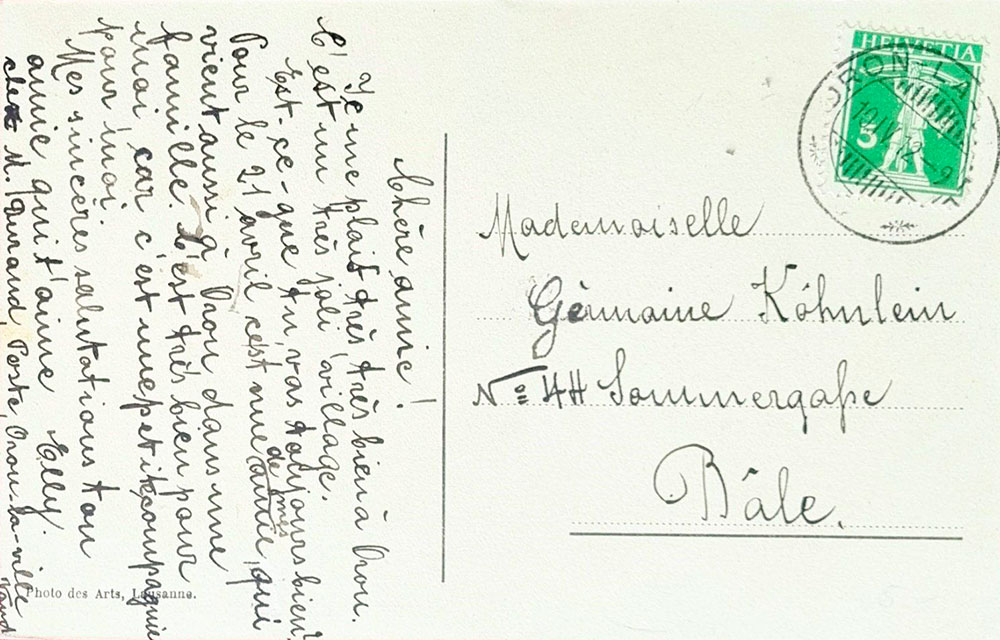 Chère amie!
Je me plaît très très bien à Oron.
C'est un très joli village.
Est-ce-que tu vas toujours bien?
Pour le 21 avril c'est une de mes amie, qui
vient aussi à Oron dans une
famille. C'est très bien pour
moi car c'est une petite compagnie
pour moi.
Mes sincères salutations ton
amie qui t'aime Elly.
chez M. Durand, Poste, Oron-la-ville
Vaud
Mademoiselle
Gèrmaine Köhnlein
No 44 Sommergaße
Bâle.
HELVETIA
5
ORON-LA-
10.IV.12-9
Photo des Arts, Lausanne.